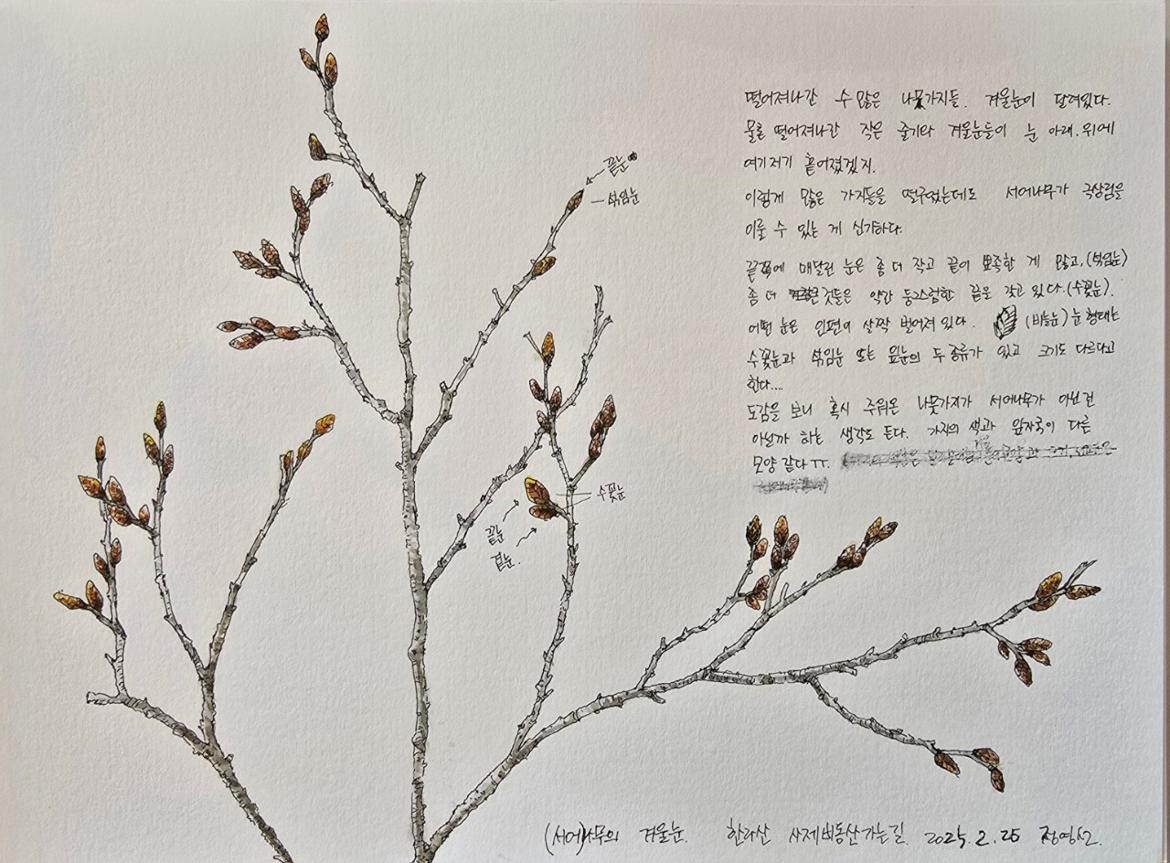 떨어져나간 수 많은 나뭇가지들. 겨울눈이 달려있다.
물론 떨어져나간 작은 줄기와 겨울눈들이 눈 아래. 위에
여기저기 흩어졌겠지.
이렇게 많은 가지들을 떨구었는데도 서어나무가 극상림을
이룰 수 있는 게 신기하다.
끝쪽에 매달린 눈은 좀 더 작고 끝이 뾰족한 게 많고, (섞임눈)
좀 더 것들은 약간 둥그스럼한 끝을 갖고 있다. (수꽃눈).
어떤 눈은 인편이 살짝 벌어져 있다. (비늘눈) 눈 형태는
수꽃눈과 섞임눈 또는 잎눈의 두 종류가 있고 크기도 다르다고
한다...
도감을 보니 혹시 주워온 나뭇가지가 서어나무가 아닌건
아닌까 하는 생각도 든다. 가지의 색과 잎자국이 다른
모양 같다 ㅜㅜ.
끝눈
섞임눈
수꽃눈
끝눈
곁눈.
(서어)나무의 겨울눈. 한라산 사제비동산 가는길. 2025. 2. 25 정영선.